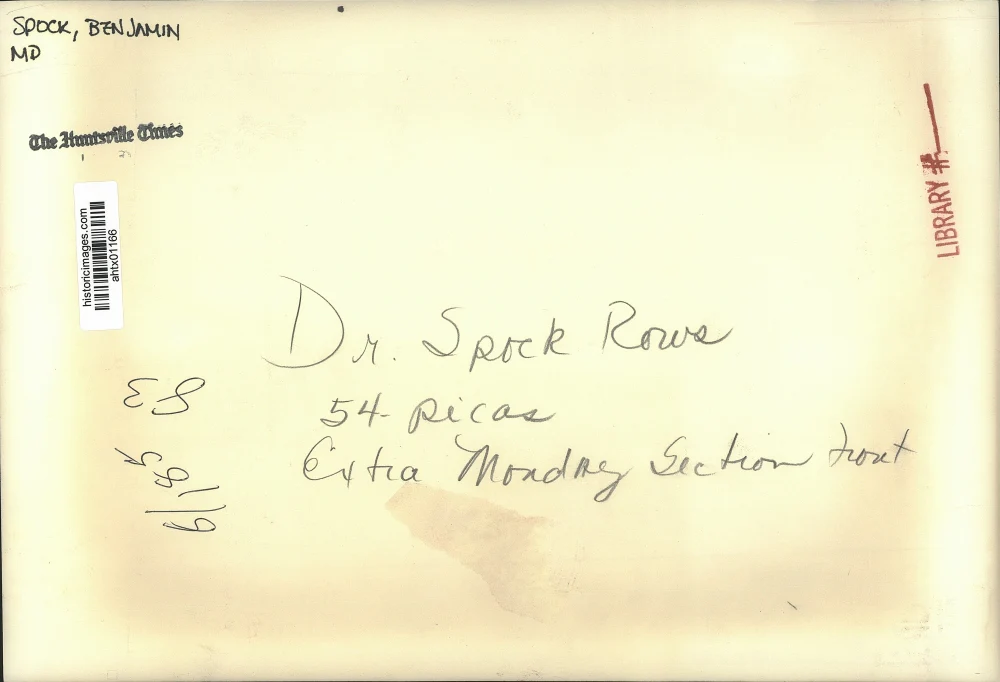 SPOCK, BENJAMIN
MD
The Huntsville Times
historicimages.com
ahtx01166
LIBRARY #
Dr. Spock Rows
54 picas
Extra Monday Section front